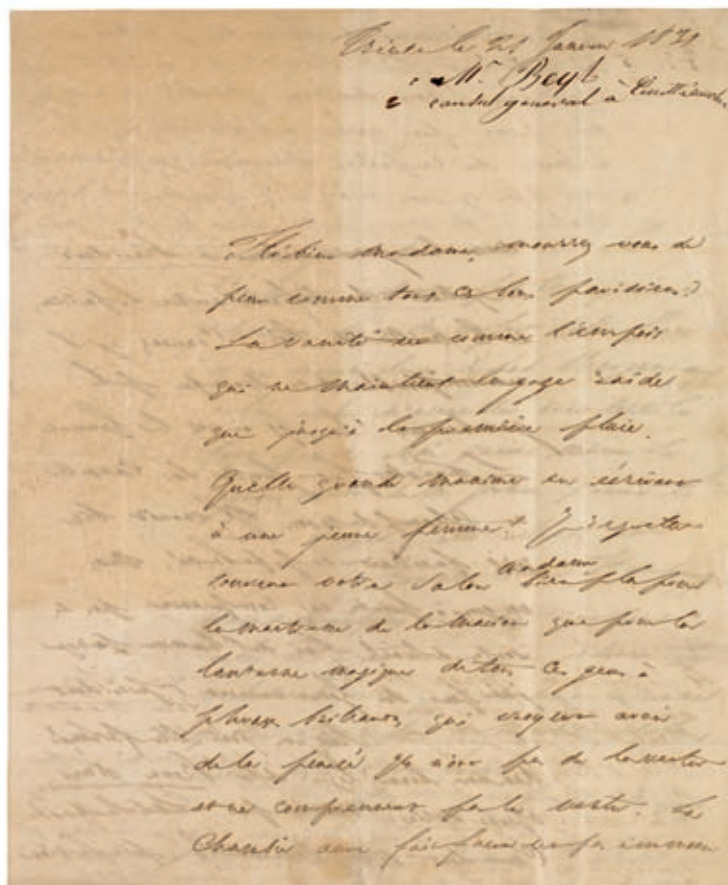 Trieste le 21 Janvier 1831
Mr Beyle
consul général à
Hé bien madame, mourrez vous de
peur comme tous ces bons parisiens?
La vanité est comme l'empois
qui ne maintient le gaze raide
que jusqu'à la première pluie.
Quelle grande maxime en écrivant
à une jeune femme! Je regrette
souvent votre salon madame bien plus pour
la maitresse de la maison que pour la
lanterne magique de tous ces gens à
phrases brillantes qui croyent avoir
de la pensée
et ne comprennent pas le reste. La